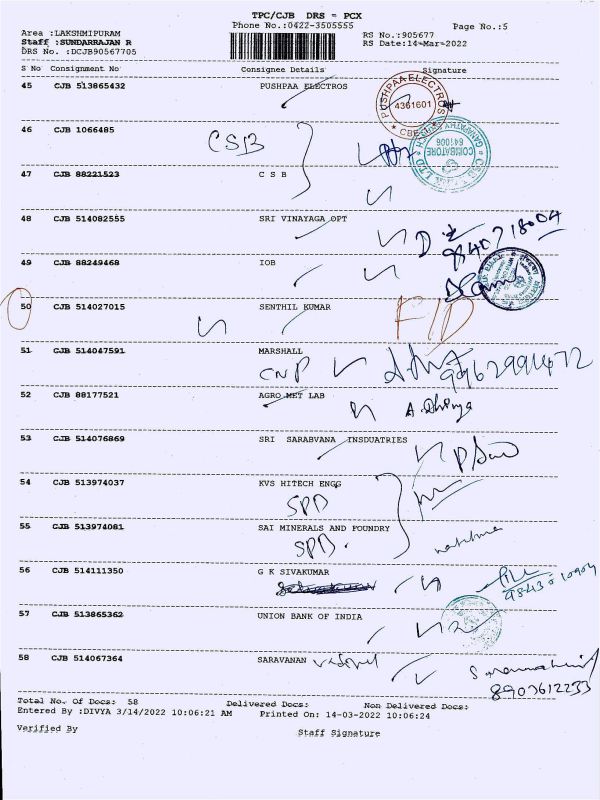 TPC/CJB DRS = PCX
Phone No.:0422-3505555
Page No.:5
Area :LAKSHMIPURAM
Staff :SUNDARRAJAN R
DRS No. :DCJB90567705
RS No.:905677
RS Date:14-Mar-2022
S No Consignment No Consignee Details Signature
45 CJB 513865432 PUSHPAA ELECTROS
PUSHPAA ELECTROS
4361601
CBE
46 CJB 1066485
CSB
COIMBATORE
641006
47 CJB 88221523 C S B
48 CJB 514082555 SRI VINAYAGA OPT
9840718004
49 CJB 88249468 IOB
50 CJB 514027015 SENTHIL KUMAR
F/D
51 CJB 514047591 MARSHALL
CNP
9962991472
52 CJB 88177521 AGRO MET LAB
A. Dhivya
53 CJB 514076869 SRI SARABVANA INSDUATRIES
54 CJB 513974037 KVS HITECH ENGG
SPD
55 CJB 513974081 SAI MINERALS AND FOUNDRY
SPD.
56 CJB 514111350 G K SIVAKUMAR
57 CJB 513865362 UNION BANK OF INDIA
58 CJB 514067364 SARAVANAN
8903612233
Total No. Of Docs: 58 Delivered Docs: Non Delivered Docs:
Entered By :DIVYA 3/14/2022 10:06:21 AM Printed On: 14-03-2022 10:06:24
Verified By
Staff Signature